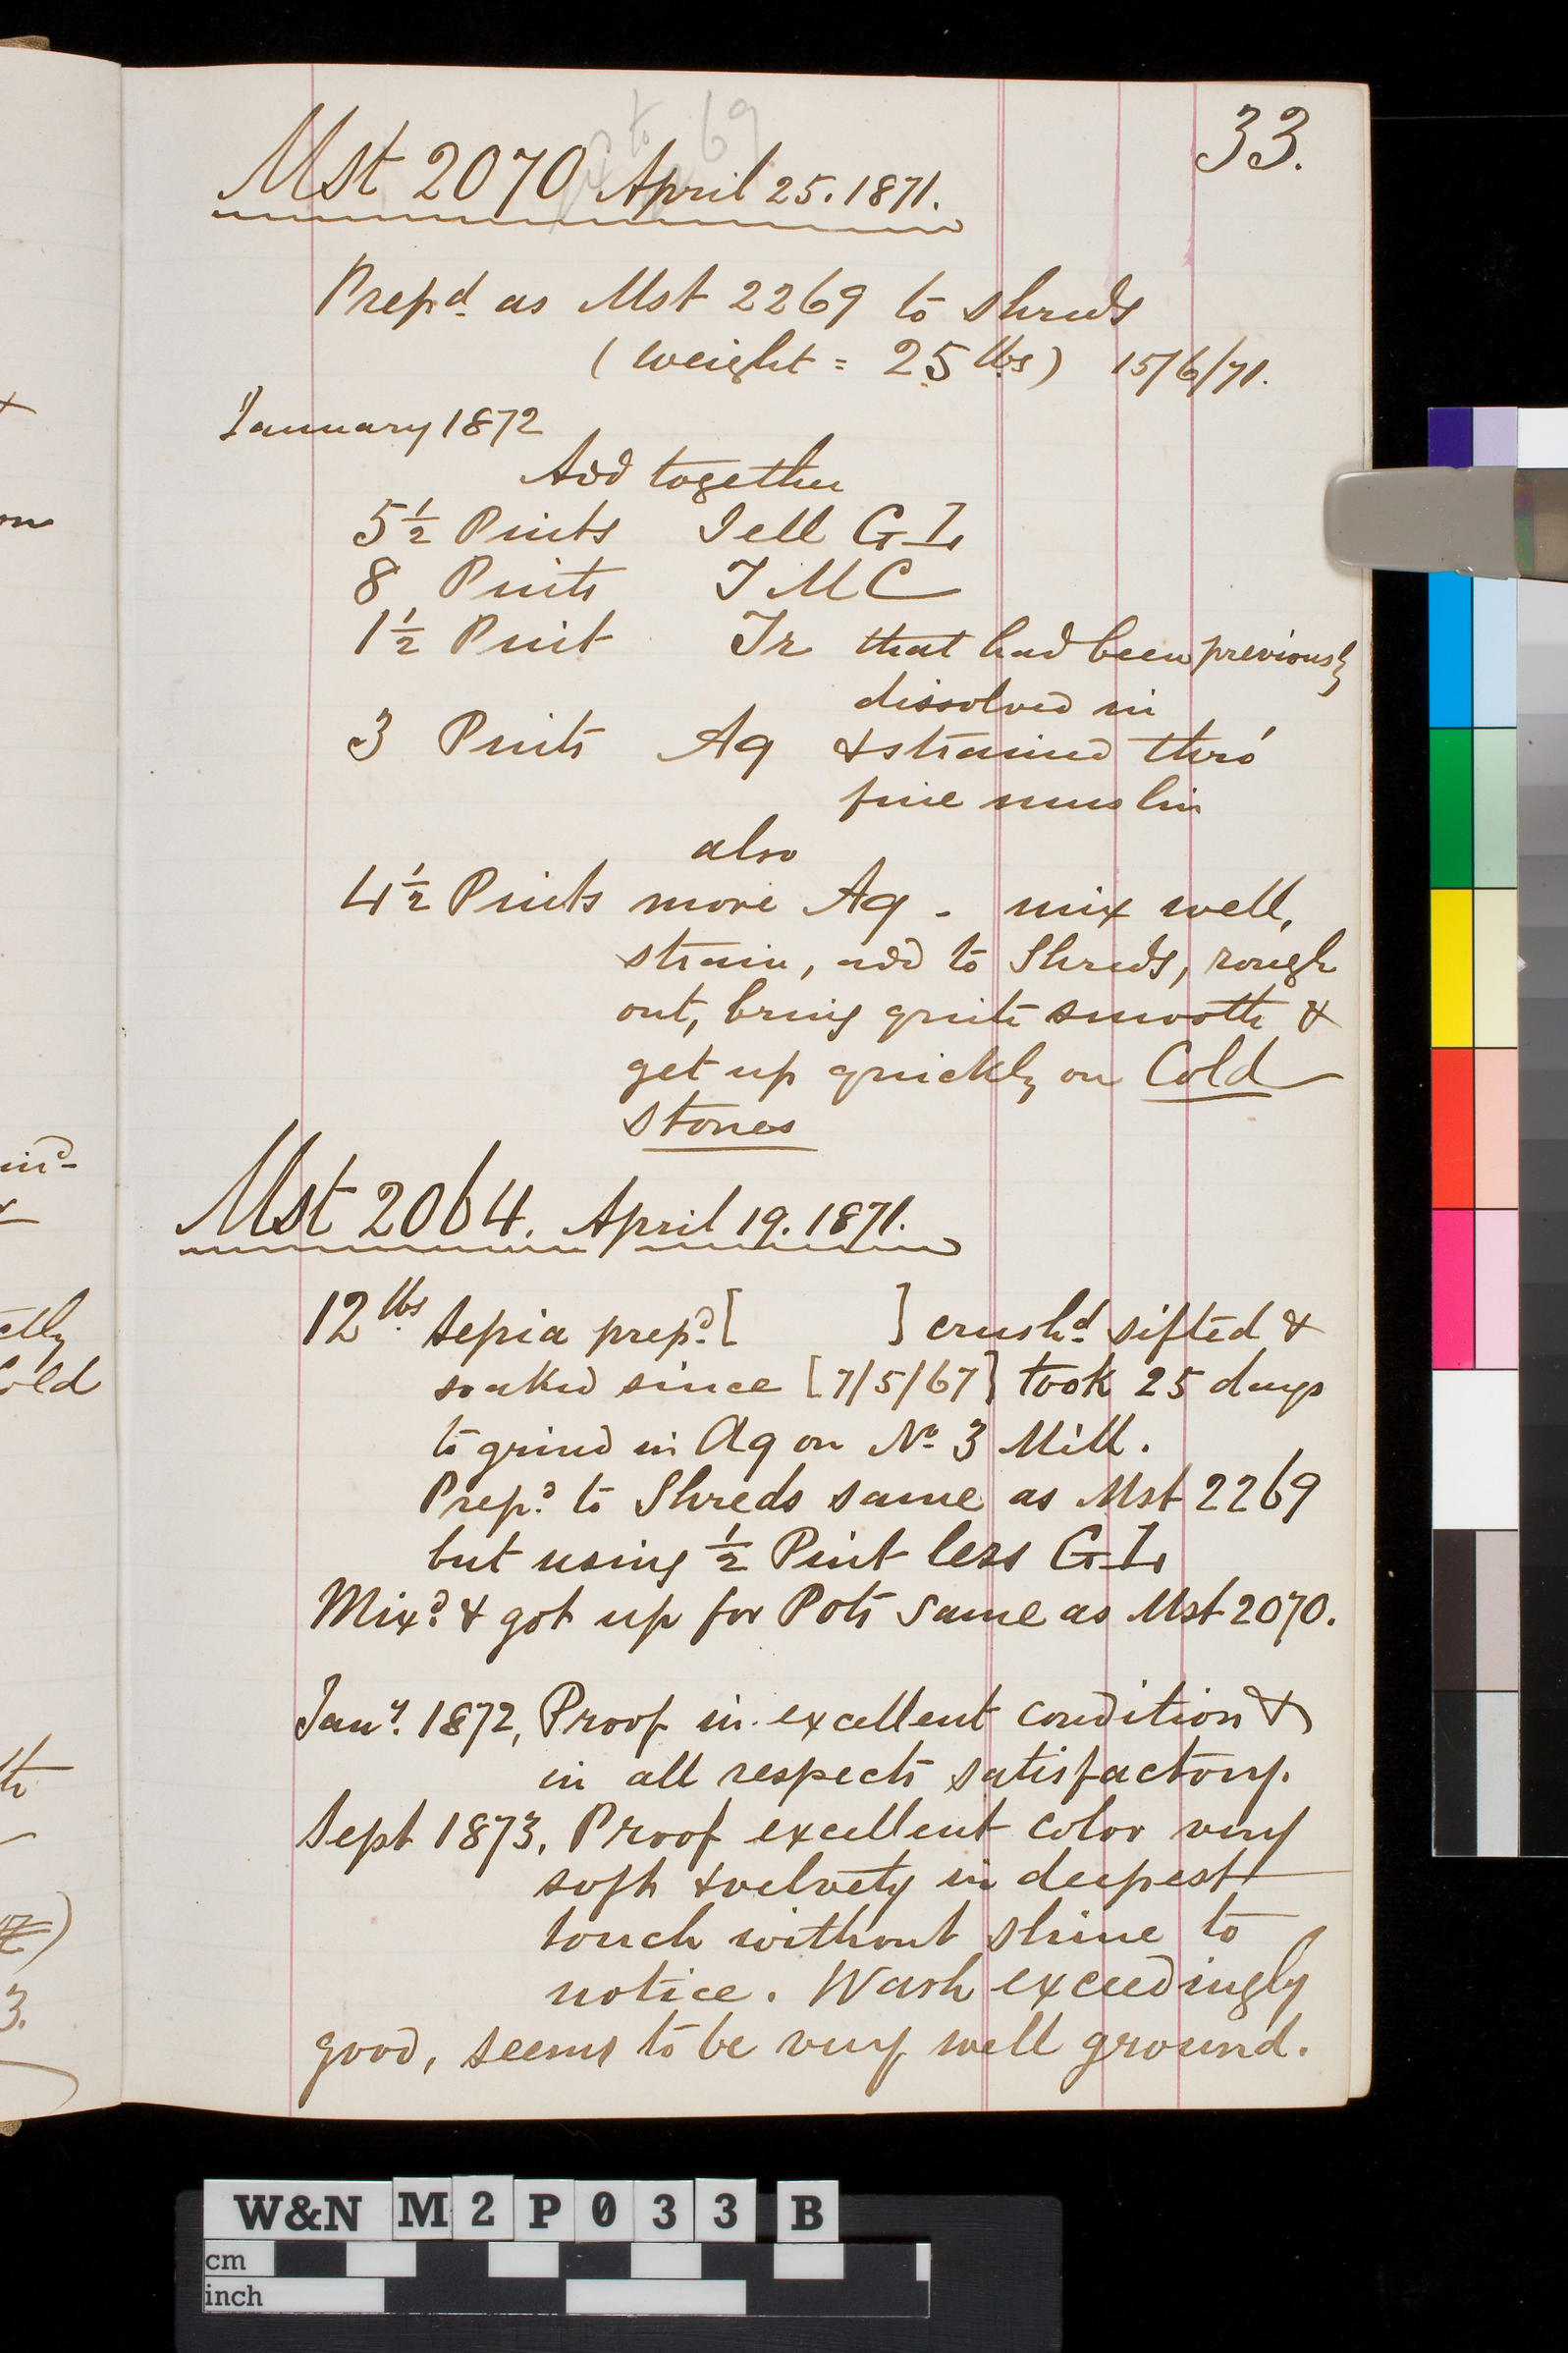 33.
to 69
Mst 2070 April 25. 1871.
Prepd. as Mst 2269 to shreds
(weight = 25 lbs) 15/6/71.
January 1872
Add together
5½ Pints Jell GL
8 Pints JMC
1½ Pint Tr that had been previously
dissolved in
3 Pints Aq & strained thro'
fine muslin
also
4½ Pints more Aq - mix well,
strain, add to Shreds, rough
out, bring quite smooth &
get up quickly on Cold
stones
Mst 2064. April 19. 1871.
12 lbs. Sepia prepd. [ ] crushd. sifted &
soaked since [7/5/67] took 25 days
to grind in Aq on No. 3 Mill.
Prepd. to Shreds same as Mst 2269
but using ½ Pint less GL
Mixd. & got up for Pots same as Mst 2070.
Jany. 1872, Proof in excellent condition &
in all respects satisfactory.
Sept 1873. Proof excellent color very
soft & velvety in deepest
touch without shine to
notice. Wash exceedingly
good, seems to be very well ground.
W&N M2P033 B
cm
inch